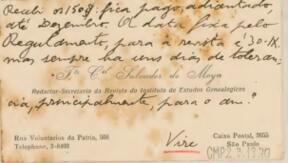 Recebi os 150$, fica pago, adiantado,
até Dezembro. A data fixa pelo
Regulamento, para a revista é 30-IX.
mas sempre ha uns dias de toleran-
Ten. Cel. Salvador de Moya
Redactor-Secretario da Revista do Instituto de Estudos Genealogicos
cia, principalmente, para o am.º
Rua Voluntarios da Patria, 566
Telephone, 3-8693
Vire
Caixa Postal, 3655
São Paulo